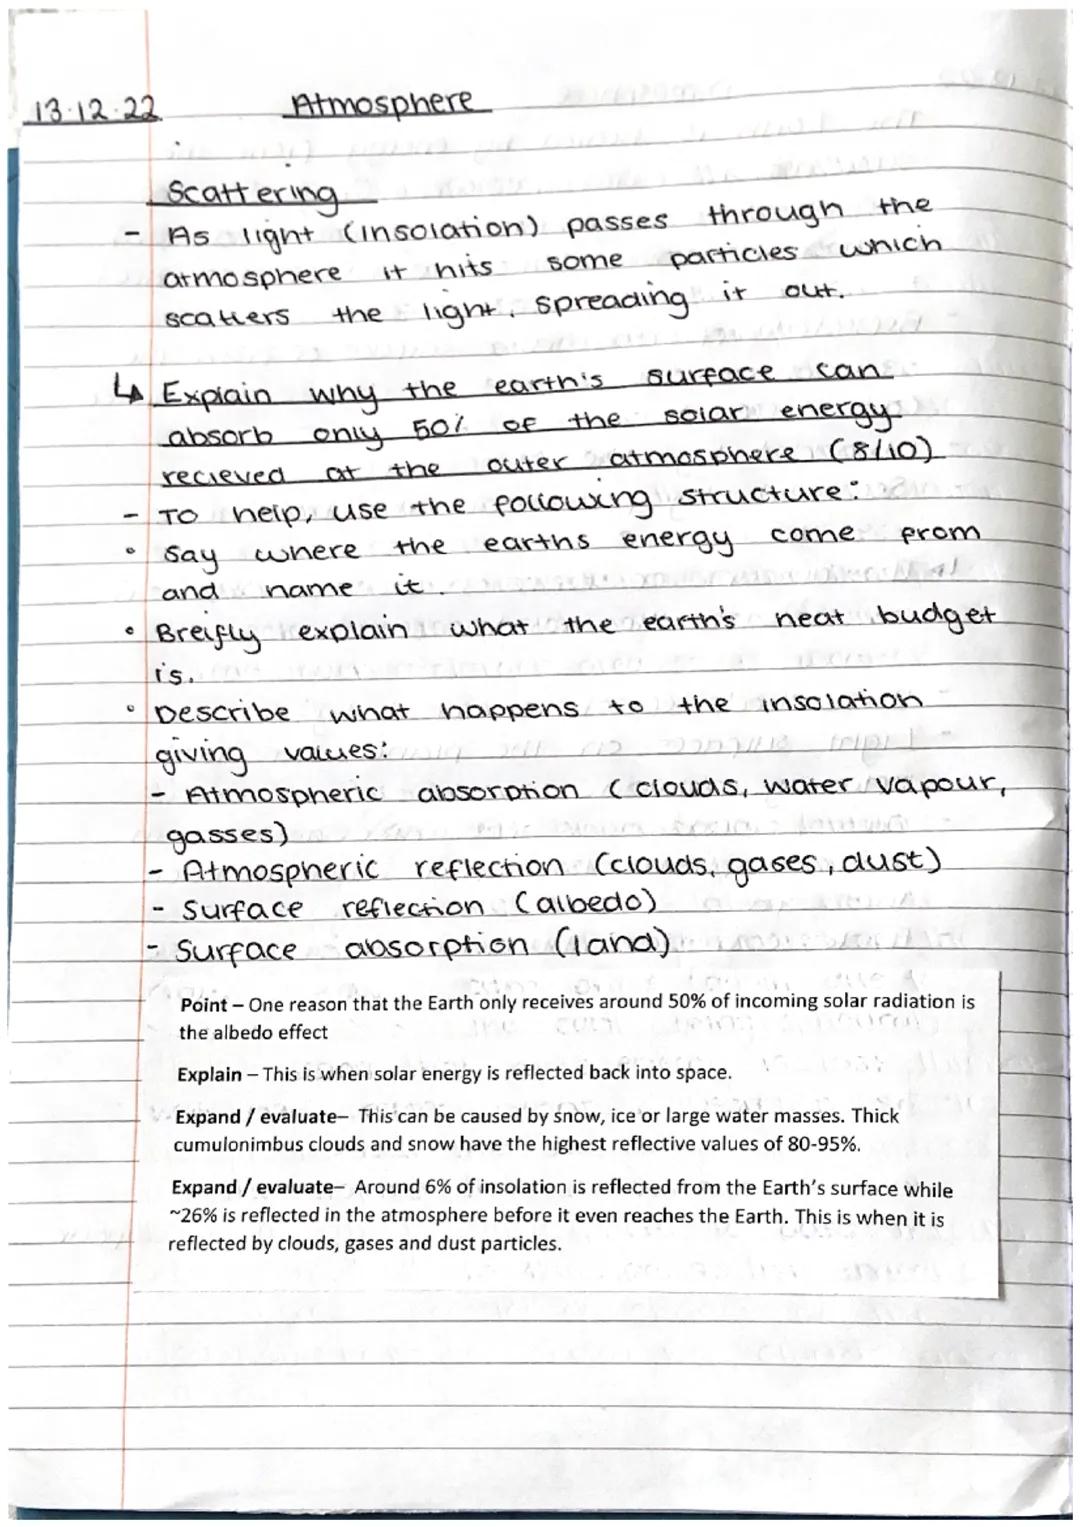 13.12.22 Atmosphere
Scattering
- As light (insolation) passes through the
atmosphere it hits some particles which
scatters the light, spreading it out.
↳ Explain why the earth's surface can
absorb only 50% of the solar energy
recieved at the outer atmosphere (8/10)
- To help, use the following structure:
• Say where the earths energy come from
and name it.
• Breifly explain what the earth's heat budget
is.
• Describe what happens to the insolation
giving values:
- Atmospheric absorption (clouds, water vapour,
gasses)
- Atmospheric reflection (clouds, gases, dust)
- Surface reflection (albedo)
- Surface absorption (land)
Point – One reason that the Earth only receives around 50% of incoming solar radiation is
the albedo effect
Explain – This is when solar energy is reflected back into space.
Expand / evaluate– This can be caused by snow, ice or large water masses. Thick
cumulonimbus clouds and snow have the highest reflective values of 80-95%.
Expand / evaluate– Around 6% of insolation is reflected from the Earth's surface while
~26% is reflected in the atmosphere before it even reaches the Earth. This is when it is
reflected by clouds, gases and dust particles.